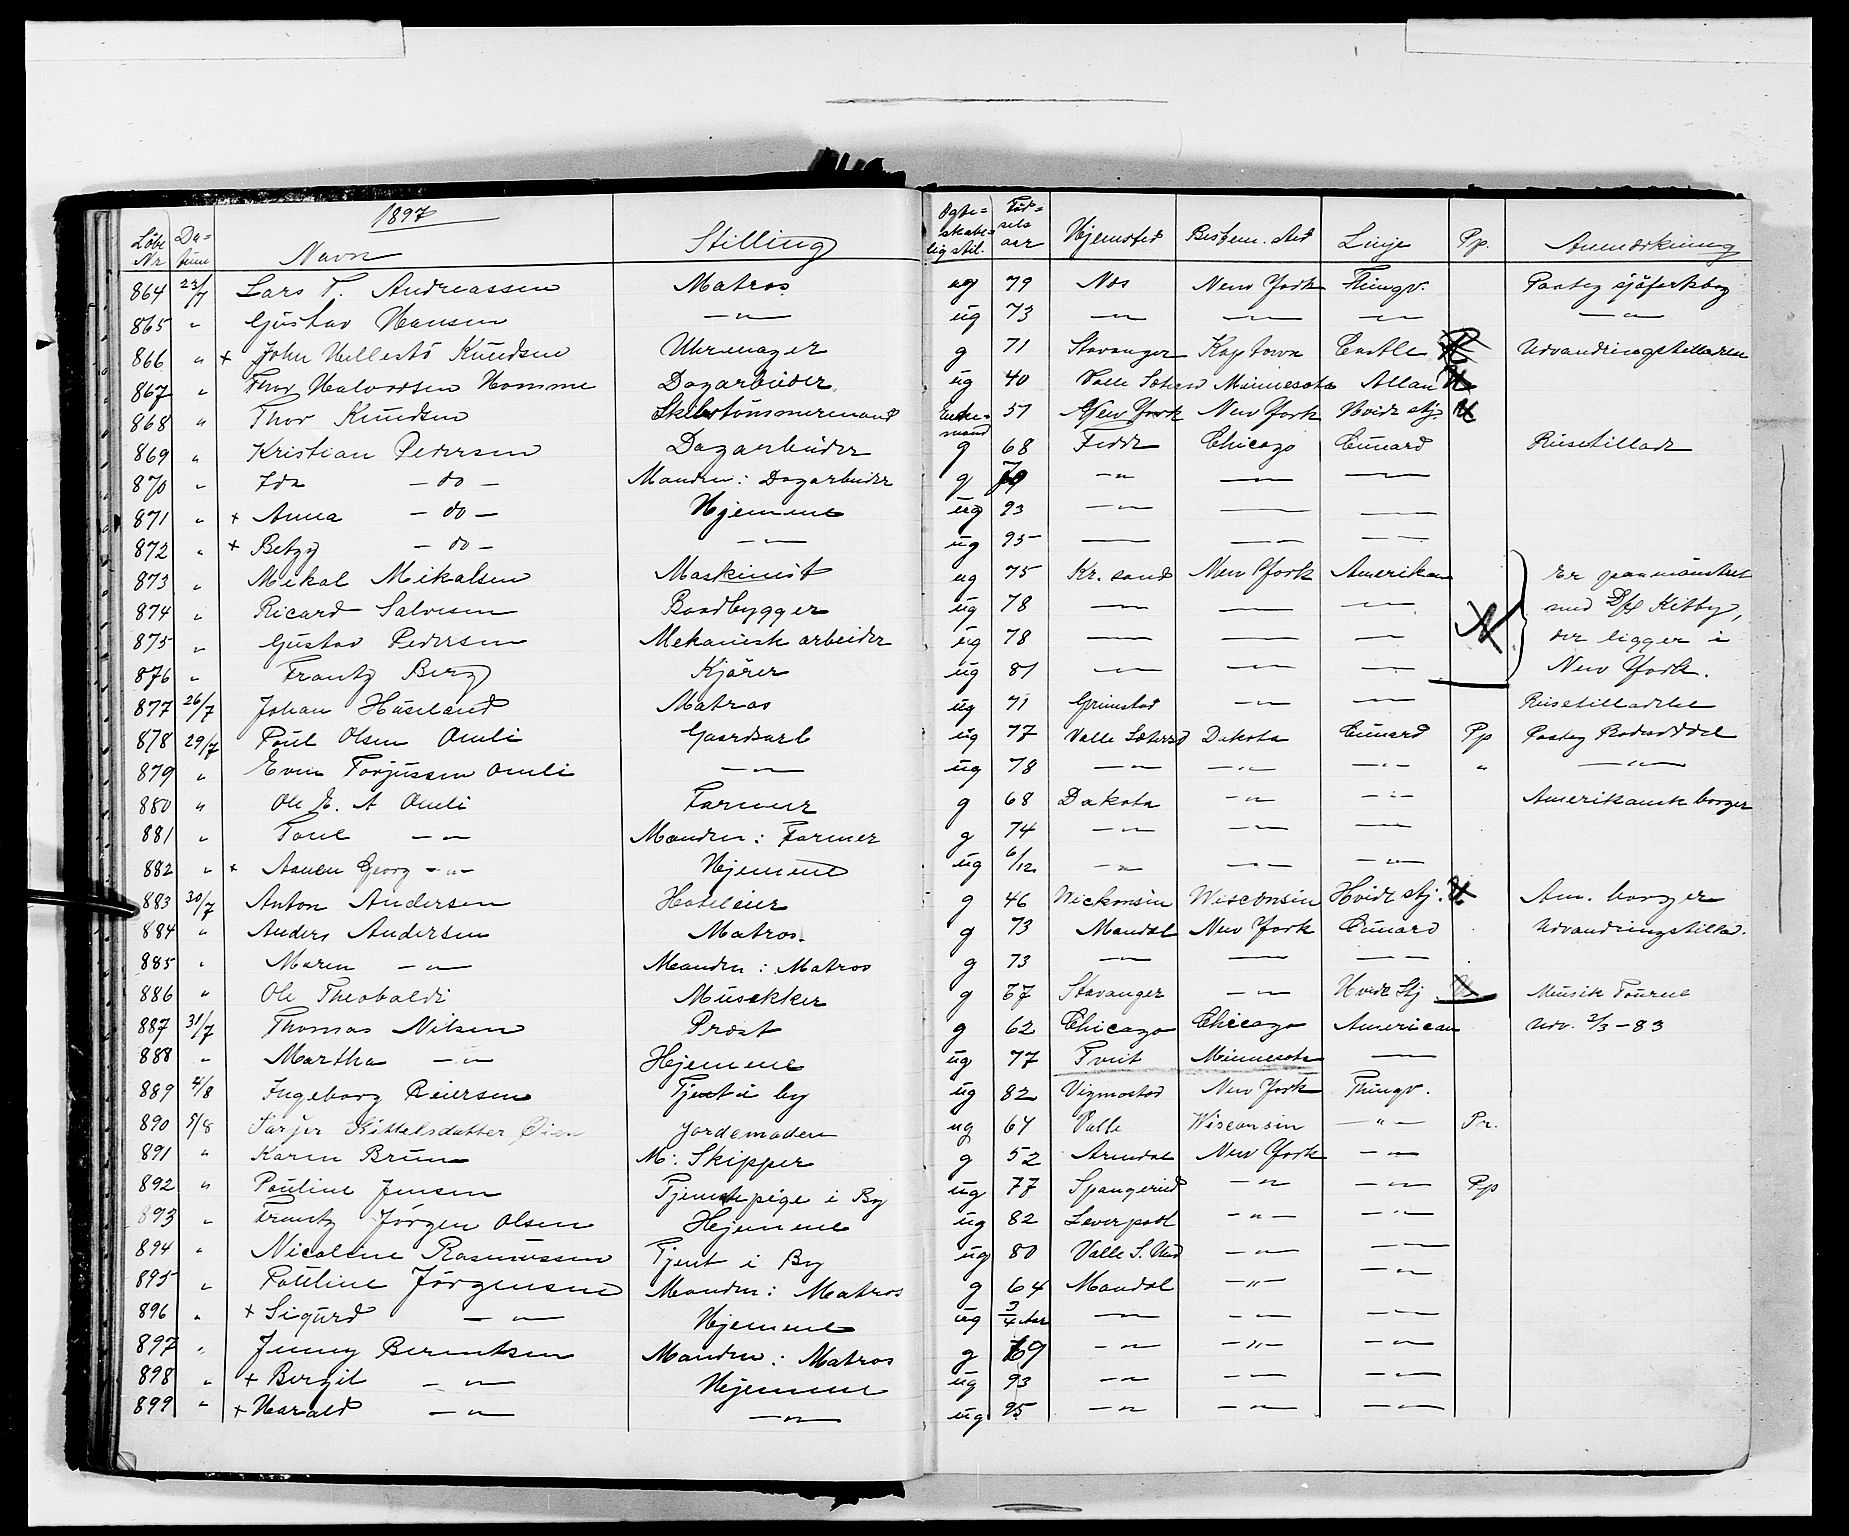 1897
Løbe Nr Da-tum Navn Stilling Ægte-skabe-lig stil. Fød-sels aar Hjemsted Bestem. sted Linje Pp. Anmærkning
864 23/7 Lars T. Andreassen Matros ug 79 Nes New York Thingv. Paateg sjöfartsbog
865 " Gustav Hansen —"— ug 73 —"— —"— —"— —"—
866 " + John Hellestö Knudsen Uhrmager g 71 Stavanger Kaptown Castle Udvandringstilladen
867 " Thor Halvorsen Homme Dagarbeider ug 40 Valle Sætersd Minnesota Allan
868 " Thor Knudsen Skibstömmermand Enke-mand 51 New York New York Hvide stj.
869 " Kristian Pedersen Dagarbeider g 68 Fede Chicago Cunard Reisetillade
870 " Ida — do — Manden: Dagarbeider g 70 —"— —"— —"—
871 " + Anna — do — Hjemme ug 93 —"— —"— —"—
872 " + Betzy — do — —"— ug 95 —"— —"— —"—
873 " Mikal Mikalsen Maskinist ug 75 Kr. sand New York Amerikan Er paamönstret
874 " Ricard Salvesen Baadbygger ug 78 —"— —"— —"— med D/S Kitty,
875 " Gustav Pedersen Mekanisk arbeider ug 78 —"— —"— —"— der ligger i
876 " Frantz Berg Kjörer ug 81 —"— —"— —"— New York.
877 26/7 Johan Hüseland Matros ug 71 Grimstad —"— —"— Reisetilladelse
878 29/7 Poul Olsen Omli Gaardkarl ug 77 Valle Sætersd Dakota Cunard Pp Paateg
879 " Even Torjussen Omli —"— ug 78 —"— —"— —"— " —"—
880 " Ole E. A Omli Farmer g 68 Dakota —"— —"— Amerikansk borger
881 " Tone —"— Manden: Farmer g 74 —"— —"— —"—
882 " + Georg —"— Hjemme ug 6/12 —"— —"— —"—
883 30/7 Anton Andersen Hoteleier g 46 Wickonsin Wisconsin Hvide stj. Am. borger
884 " Anders Andersen Matros g 73 Mandal New York Cunard Udvandringstillad.
885 " Maren —"— Manden: Matros g 73 —"— —"— —"—
886 " Ole Theobaldi Musikker g 67 Stavanger —"— Hvide Stj Musik Tourne
887 31/7 Thomas Nilsen Prest g 62 Chicago Chicago American Udv. 2/3-83
888 " Martha —"— Hjemme ug 77 Tveit Minnesota —"—
889 4/8 Ingeborg Reiersen Tjent i by ug 82 Vigmostad New York Thingv.
890 5/8 Kittelsdatter Öien Jordemoden ug 64 Valle Wisconsin —"— Pr.
891 " Karen Brun M: Skipper g 52 Arendal New York —"—
892 " Pauline Jensen Tjenestepige i By ug 77 Spangereid —"— —"— Pp
893 " Frantz Jörgen Olsen Hjemme ug 82 Leverpool —"— —"—
894 " Nicoline Rasmussen Tjent i By ug 80 Valle S. Und —"— —"—
895 " Pauline Jörgensen Manden: Matros g 64 Mandal —"— —"—
896 " + Sigurd —"— Hjemme ug 3/4 Aar —"— —"— —"—
897 " Jenny Berentsen Manden: Matros g 69 —"— —"— —"—
898 " + Bergit —"— Hjemme ug 93 —"— —"— —"—
899 " + Harald —"— —"— ug 95 —"— —"— —"—